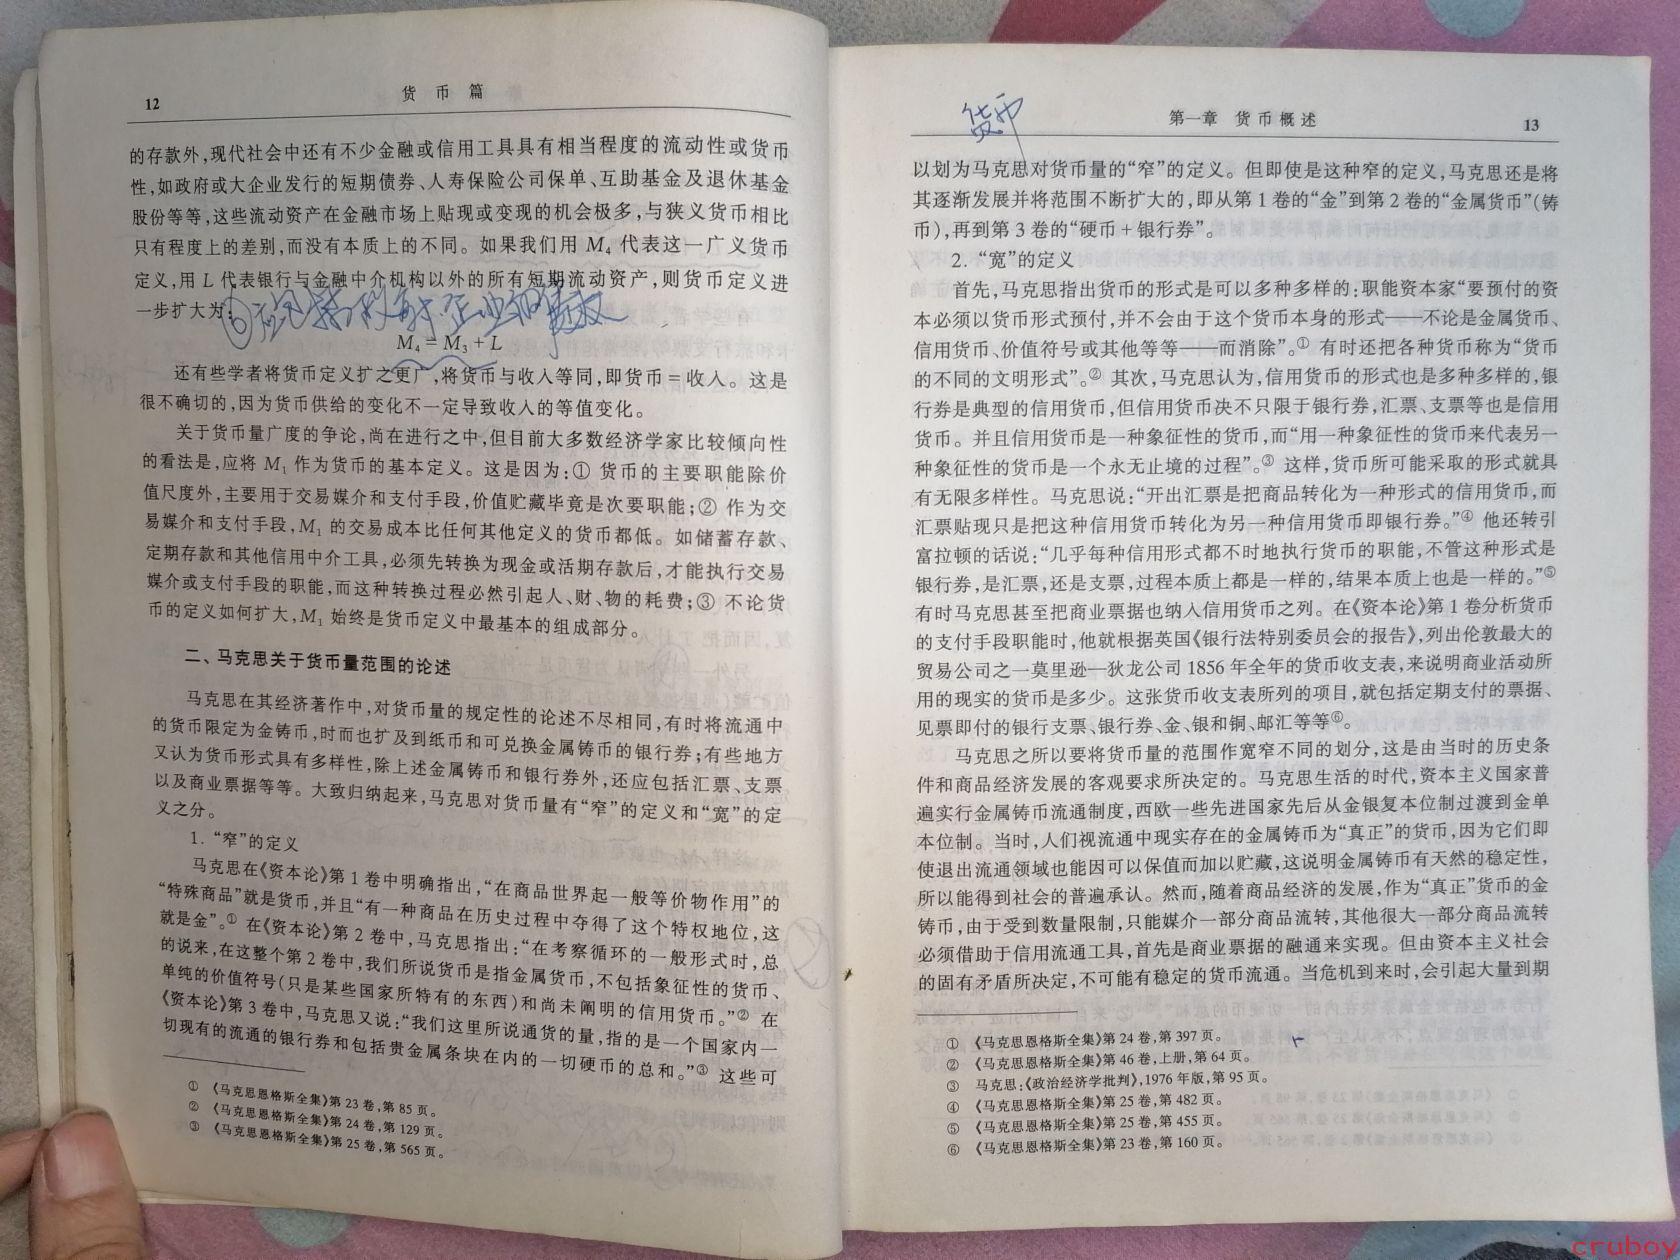 12
货币篇
的存款外,现代社会中还有不少金融或信用工具具有相当程度的流动性或货币
性,如政府或大企业发行的短期债券、人寿保险公司保单、互助基金及退休基金
股份等等,这些流动资产在金融市场上贴现或变现的机会极多,与狭义货币相比
只有程度上的差别,而没有本质上的不同。如果我们用 M₄ 代表这一广义货币
定义,用 L 代表银行与金融中介机构以外的所有短期流动资产,则货币定义进
一步扩大为:
M₄ = M₃ + L
还有些学者将货币定义扩之更广,将货币与收入等同,即货币=收入。这是
很不确切的,因为货币供给的变化不一定导致收入的等值变化。
关于货币量广度的争论,尚在进行之中,但目前大多数经济学家比较倾向性
的看法是,应将 M₁ 作为货币的基本定义。这是因为:① 货币的主要职能除价
值尺度外,主要用于交易媒介和支付手段,价值贮藏毕竟是次要职能;② 作为交
易媒介和支付手段,M₁ 的交易成本比任何其他定义的货币都低。如储蓄存款、
定期存款和其他信用中介工具,必须先转换为现金或活期存款后,才能执行交易
媒介或支付手段的职能,而这种转换过程必然引起人、财、物的耗费;③ 不论货
币的定义如何扩大,M₁ 始终是货币定义中最基本的组成部分。
二、马克思关于货币量范围的论述
马克思在其经济著作中,对货币量的规定性的论述不尽相同,有时将流通中
的货币限定为金铸币,时而也扩及到纸币和可兑换金属铸币的银行券;有些地方
又认为货币形式具有多样性,除上述金属铸币和银行券外,还应包括汇票、支票
以及商业票据等等。大致归纳起来,马克思对货币量有“窄”的定义和“宽”的定
义之分。
1. “窄”的定义
马克思在《资本论》第 1 卷中明确指出,“在商品世界起一般等价物作用”的
“特殊商品”就是货币,并且“有一种商品在历史过程中夺得了这个特权地位,这
就是金”。① 在《资本论》第 2 卷中,马克思指出:“在考察循环的一般形式时,总
的说来,在这整个第 2 卷中,我们所说货币是指金属货币,不包括象征性的货币、
单纯的价值符号(只是某些国家所特有的东西)和尚未阐明的信用货币。”② 在
《资本论》第 3 卷中,马克思又说:“我们这里所说通货的量,指的是一个国家内一
切现有的流通的银行券和包括贵金属条块在内的一切硬币的总和。”③ 这些可
① 《马克思恩格斯全集》第 23 卷,第 85 页。
② 《马克思恩格斯全集》第 24 卷,第 129 页。
③ 《马克思恩格斯全集》第 25 卷,第 565 页。
货币
第一章 货币概述
13
以划为马克思对货币量的“窄”的定义。但即使是这种窄的定义,马克思还是将
其逐渐发展并将范围不断扩大的,即从第 1 卷的“金”到第 2 卷的“金属货币”(铸
币),再到第 3 卷的“硬币+银行券”。
2. “宽”的定义
首先,马克思指出货币的形式是可以多种多样的:职能资本家“要预付的资
本必须以货币形式预付,并不会由于这个货币本身的形式——不论是金属货币、
信用货币、价值符号或其他等等——而消除”。① 有时还把各种货币称为“货币
的不同的文明形式”。② 其次,马克思认为,信用货币的形式也是多种多样的,银
行券是典型的信用货币,但信用货币决不只限于银行券,汇票、支票等也是信用
货币。并且信用货币是一种象征性的货币,而“用一种象征性的货币来代表另一
种象征性的货币是一个永无止境的过程”。③ 这样,货币所可能采取的形式就具
有无限多样性。马克思说:“开出汇票是把商品转化为一种形式的信用货币,而
汇票贴现只是把这种信用货币转化为另一种信用货币即银行券。”④ 他还转引
富拉顿的话说:“几乎每种信用形式都不时地执行货币的职能,不管这种形式是
银行券,是汇票,还是支票,过程本质上都是一样的,结果本质上也是一样的。”⑤
有时马克思甚至把商业票据也纳入信用货币之列。在《资本论》第 1 卷分析货币
的支付手段职能时,他就根据英国《银行法特别委员会的报告》,列出伦敦最大的
贸易公司之一莫里逊—狄龙公司 1856 年全年的货币收支表,来说明商业活动所
用的现实的货币是多少。这张货币收支表所列的项目,就包括定期支付的票据、
见票即付的银行支票、银行券、金、银和铜、邮汇等等⑥。
马克思之所以要将货币量的范围作宽窄不同的划分,这是由当时的历史条
件和商品经济发展的客观要求所决定的。马克思生活的时代,资本主义国家普
遍实行金属铸币流通制度,西欧一些先进国家先后从金银复本位制过渡到金单
本位制。当时,人们视流通中现实存在的金属铸币为“真正”的货币,因为它们即
使退出流通领域也能因可以保值而加以贮藏,这说明金属铸币有天然的稳定性,
所以能得到社会的普遍承认。然而,随着商品经济的发展,作为“真正”货币的金
铸币,由于受到数量限制,只能媒介一部分商品流转,其他很大一部分商品流转
必须借助于信用流通工具,首先是商业票据的融通来实现。但由资本主义社会
的固有矛盾所决定,不可能有稳定的货币流通。当危机到来时,会引起大量到期
① 《马克思恩格斯全集》第 24 卷,第 397 页。
② 《马克思恩格斯全集》第 46 卷,上册,第 64 页。
③ 马克思:《政治经济学批判》,1976 年版,第 95 页。
④ 《马克思恩格斯全集》第 25 卷,第 482 页。
⑤ 《马克思恩格斯全集》第 25 卷,第 455 页。
⑥ 《马克思恩格斯全集》第 23 卷,第 160 页。
cruboy